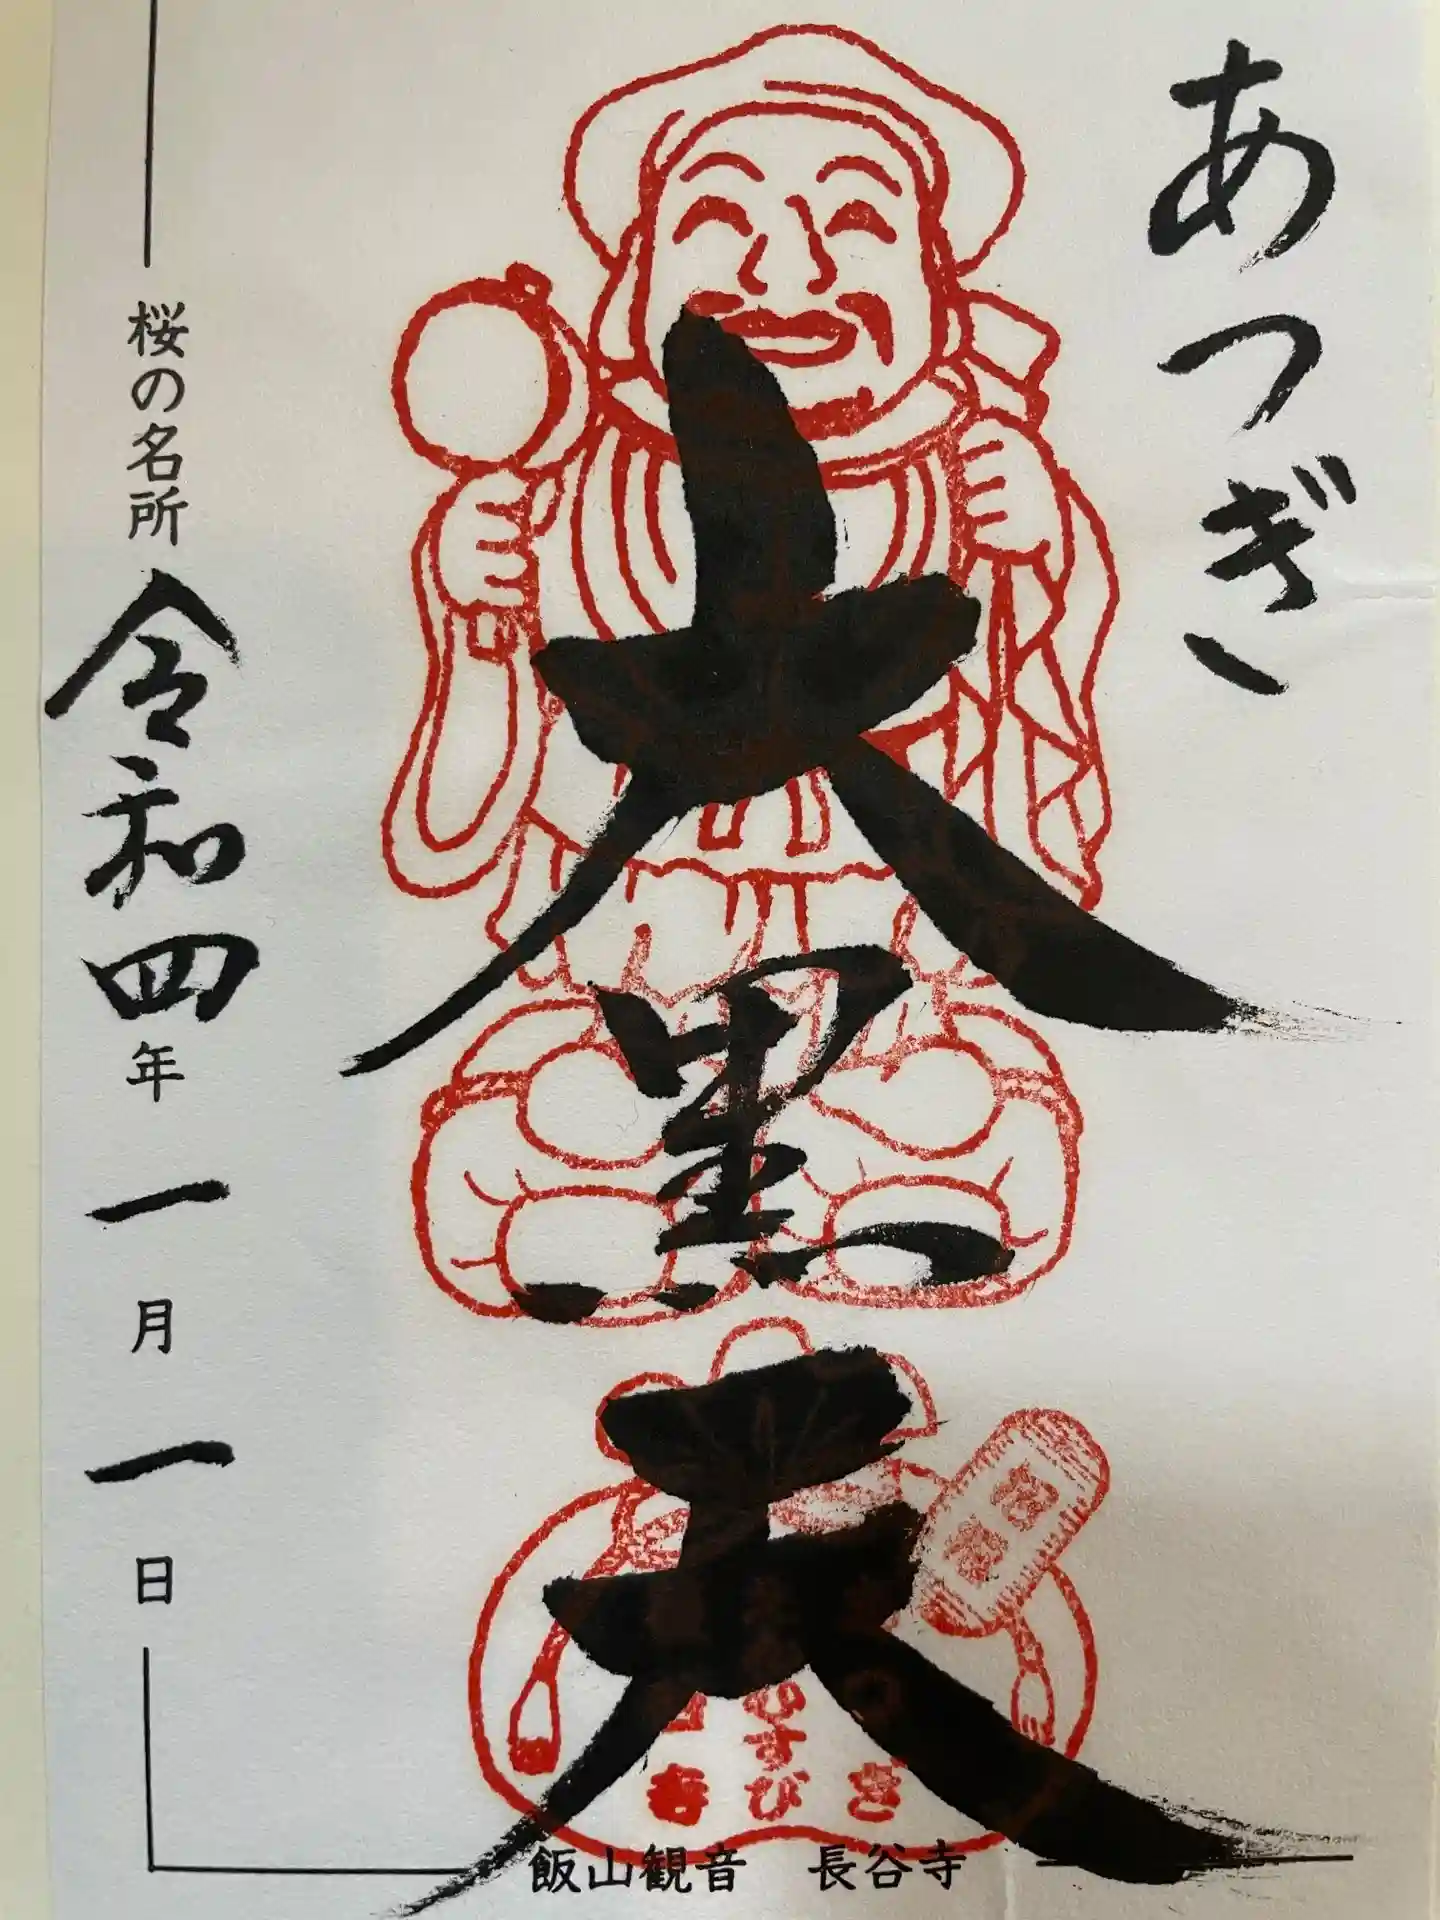 あつぎ
大黒天
桜の名所
令和四年一月一日
むすび
飯山観音 長谷寺